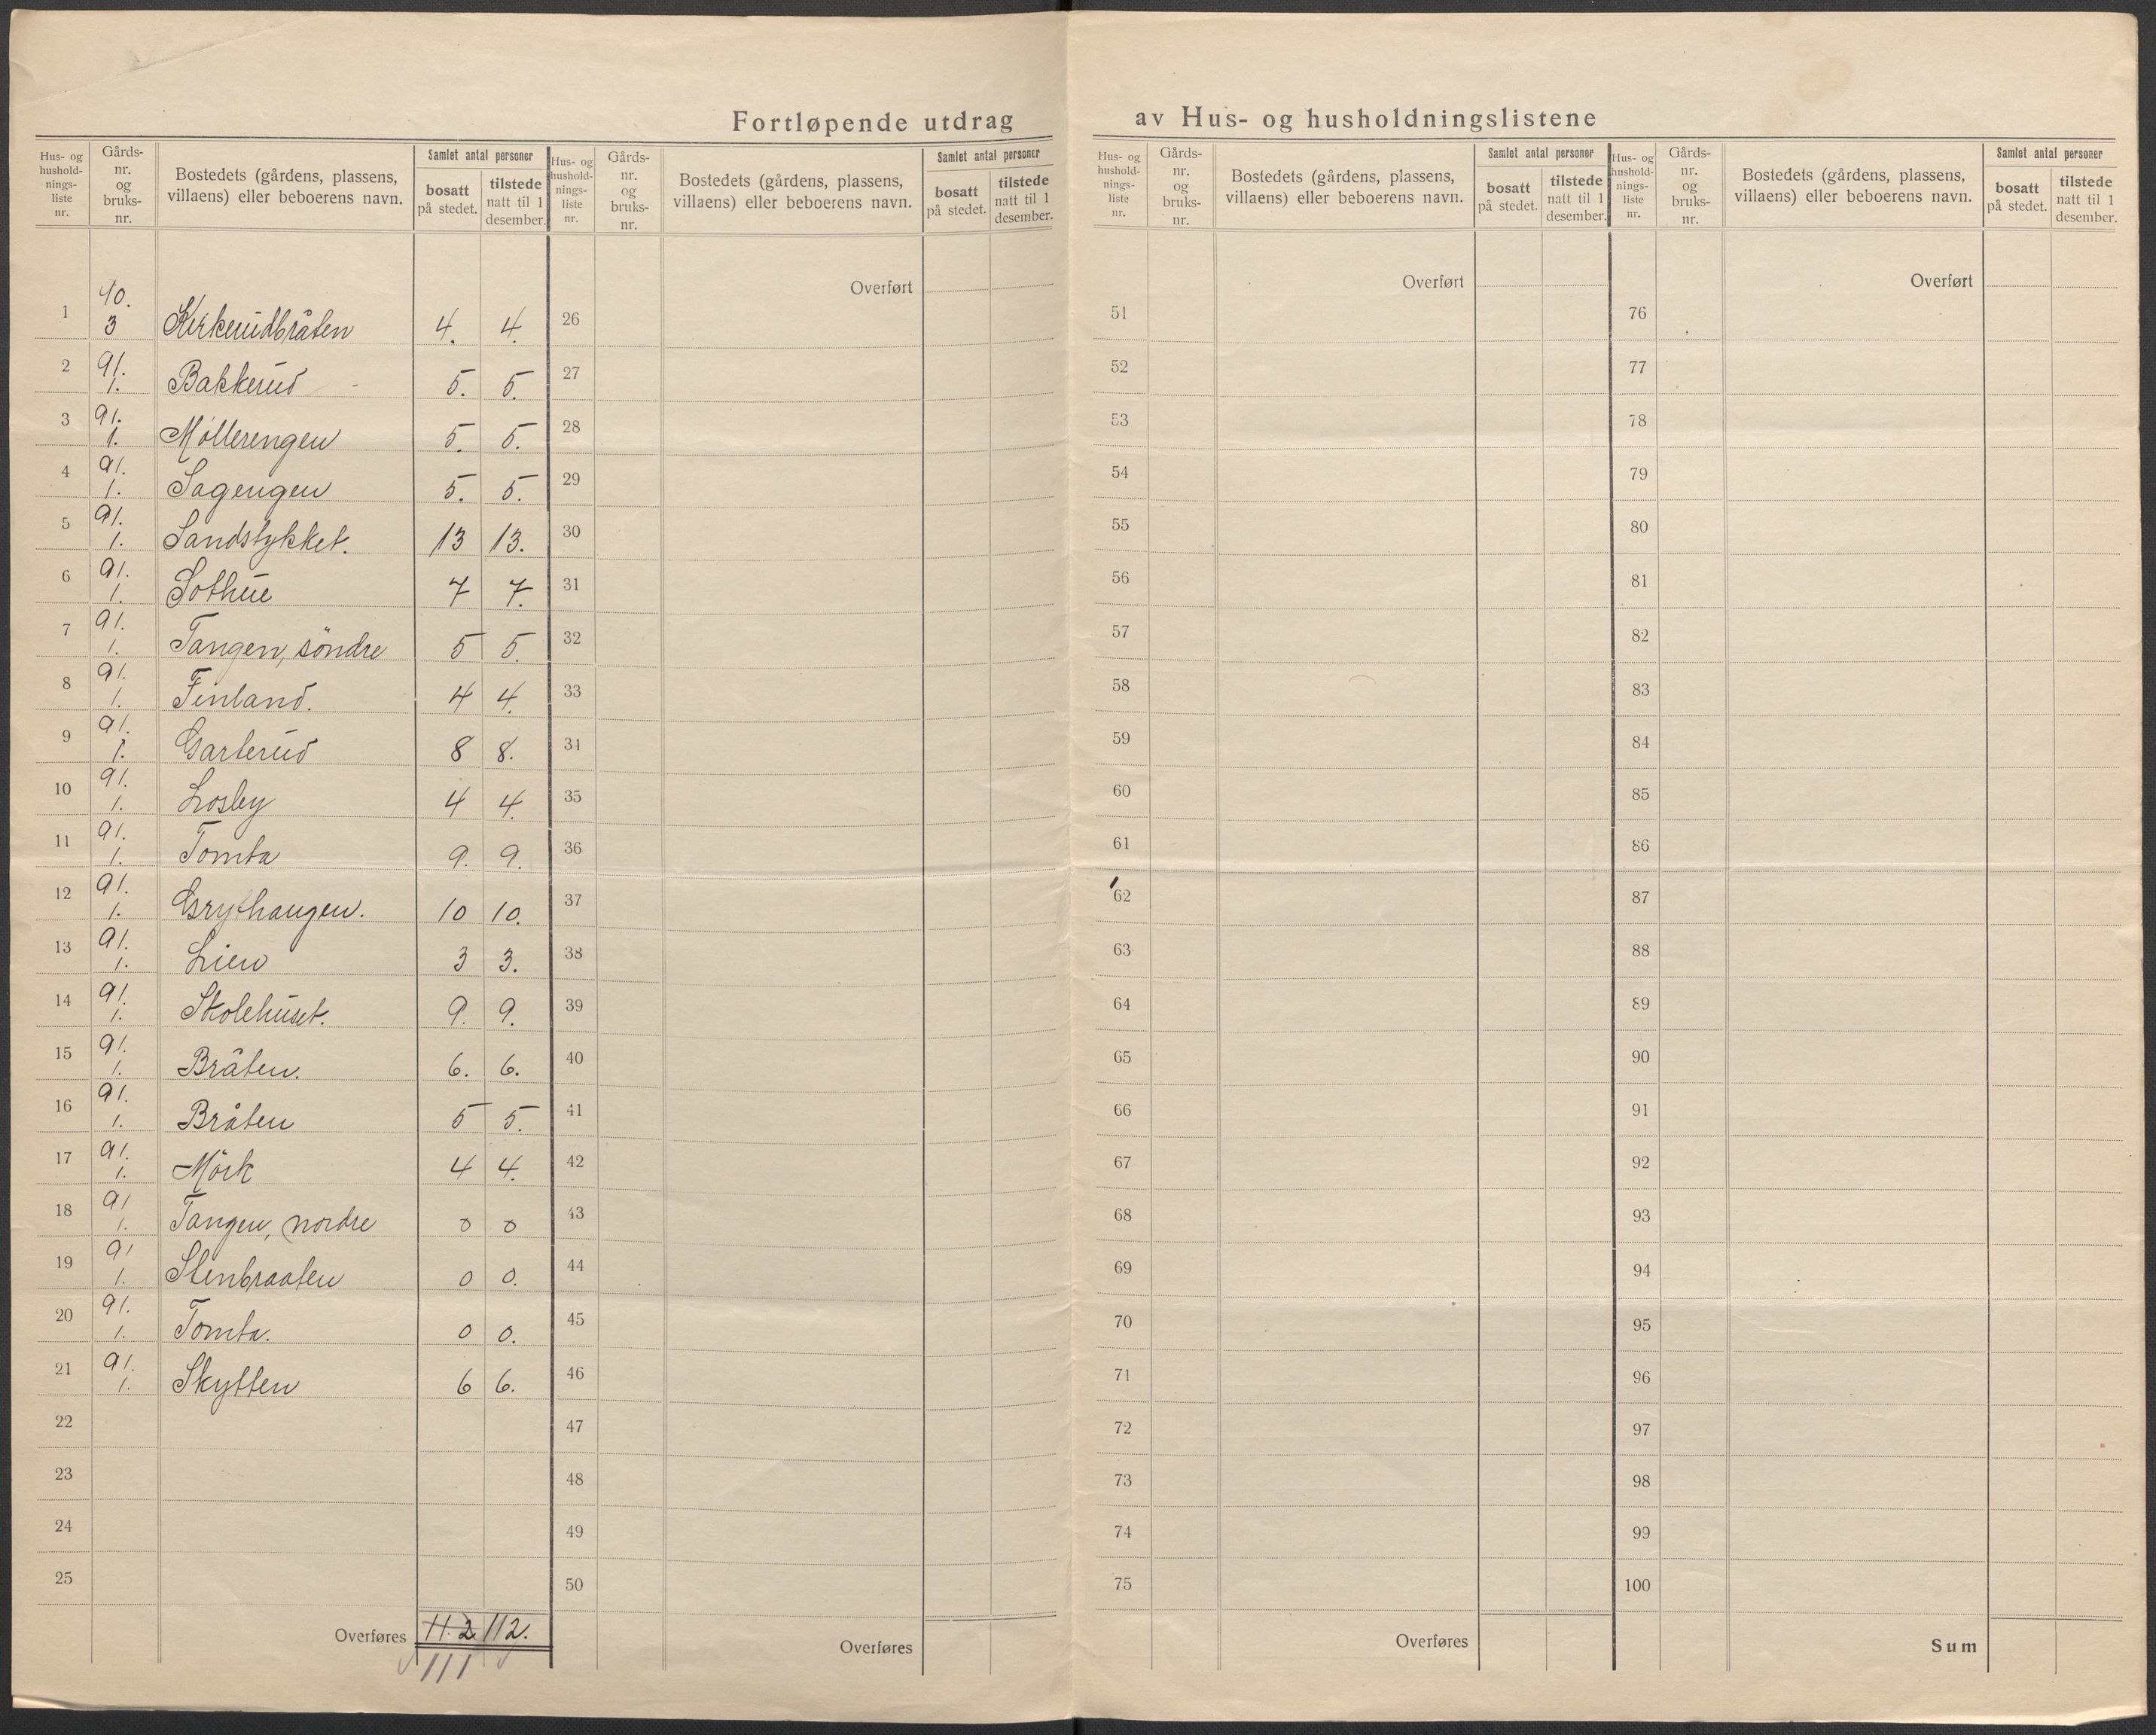 Fortløpende utdrag av Hus- og husholdningslistene
Hus- og hushold- nings- liste nr.
Gårds- nr. og bruks- nr.
Bostedets (gårdens, plassens, villaens) eller beboerens navn.
Samlet antal personer
bosatt på stedet.
tilstede natt til 1 desember.
1 40. 3 Kirkerudbråten 4. 4.
2 91. 1. Bakkerud - 5. 5.
3 91. 1. Möllerengen 5. 5.
4 91. 1. Sagengen 5. 5.
5 91. 1. Sandstykket. 13 13.
6 91. 1. Sothue 7 7.
7 91. 1. Tangen, söndre 5 5.
8 91. 1. Finland. 4 4.
9 91. 1. Garterud 8 8.
10 91. 1. Losby 4 4.
11 91. 1. Tomta 9. 9.
12 91. 1. Grythaugen. 10 10.
13 91. 1. Lien 3 3.
14 91. 1. Skolehuset. 9. 9.
15 91. 1. Bråten. 6. 6.
16 91. 1. Bråten 5 5.
17 91. 1. Mörk 4 4.
18 91 1. Tangen, nordre 0 0
19 91 1. Stenbraaten 0 0.
20 91. 1. Tomta. 0 0.
21 91. 1. Skytten 6 6.
22
23
24
25
Overføres 112 112.
111
Hus- og hushold- nings- liste nr.
Gårds- nr. og bruks- nr.
Bostedets (gårdens, plassens, villaens) eller beboerens navn.
Samlet antal personer
bosatt på stedet.
tilstede natt til 1 desember.
Overført
26
27
28
29
30
31
32
33
34
35
36
37
38
39
40
41
42
43
44
45
46
47
48
49
50
Overføres
Hus- og hushold- nings- liste nr.
Gårds- nr. og bruks- nr.
Bostedets (gårdens, plassens, villaens) eller beboerens navn.
Samlet antal personer
bosatt på stedet.
tilstede natt til 1 desember.
Overført
51
52
53
54
55
56
57
58
59
60
61
62
63
64
65
66
67
68
69
70
71
72
73
74
75
Overføres
Hus- og hushold- nings- liste nr.
Gårds- nr. og bruks- nr.
Bostedets (gårdens, plassens, villaens) eller beboerens navn.
Samlet antal personer
bosatt på stedet.
tilstede natt til 1 desember.
Overført
76
77
78
79
80
81
82
83
84
85
86
87
88
89
90
91
92
93
94
95
96
97
98
99
100
Sum